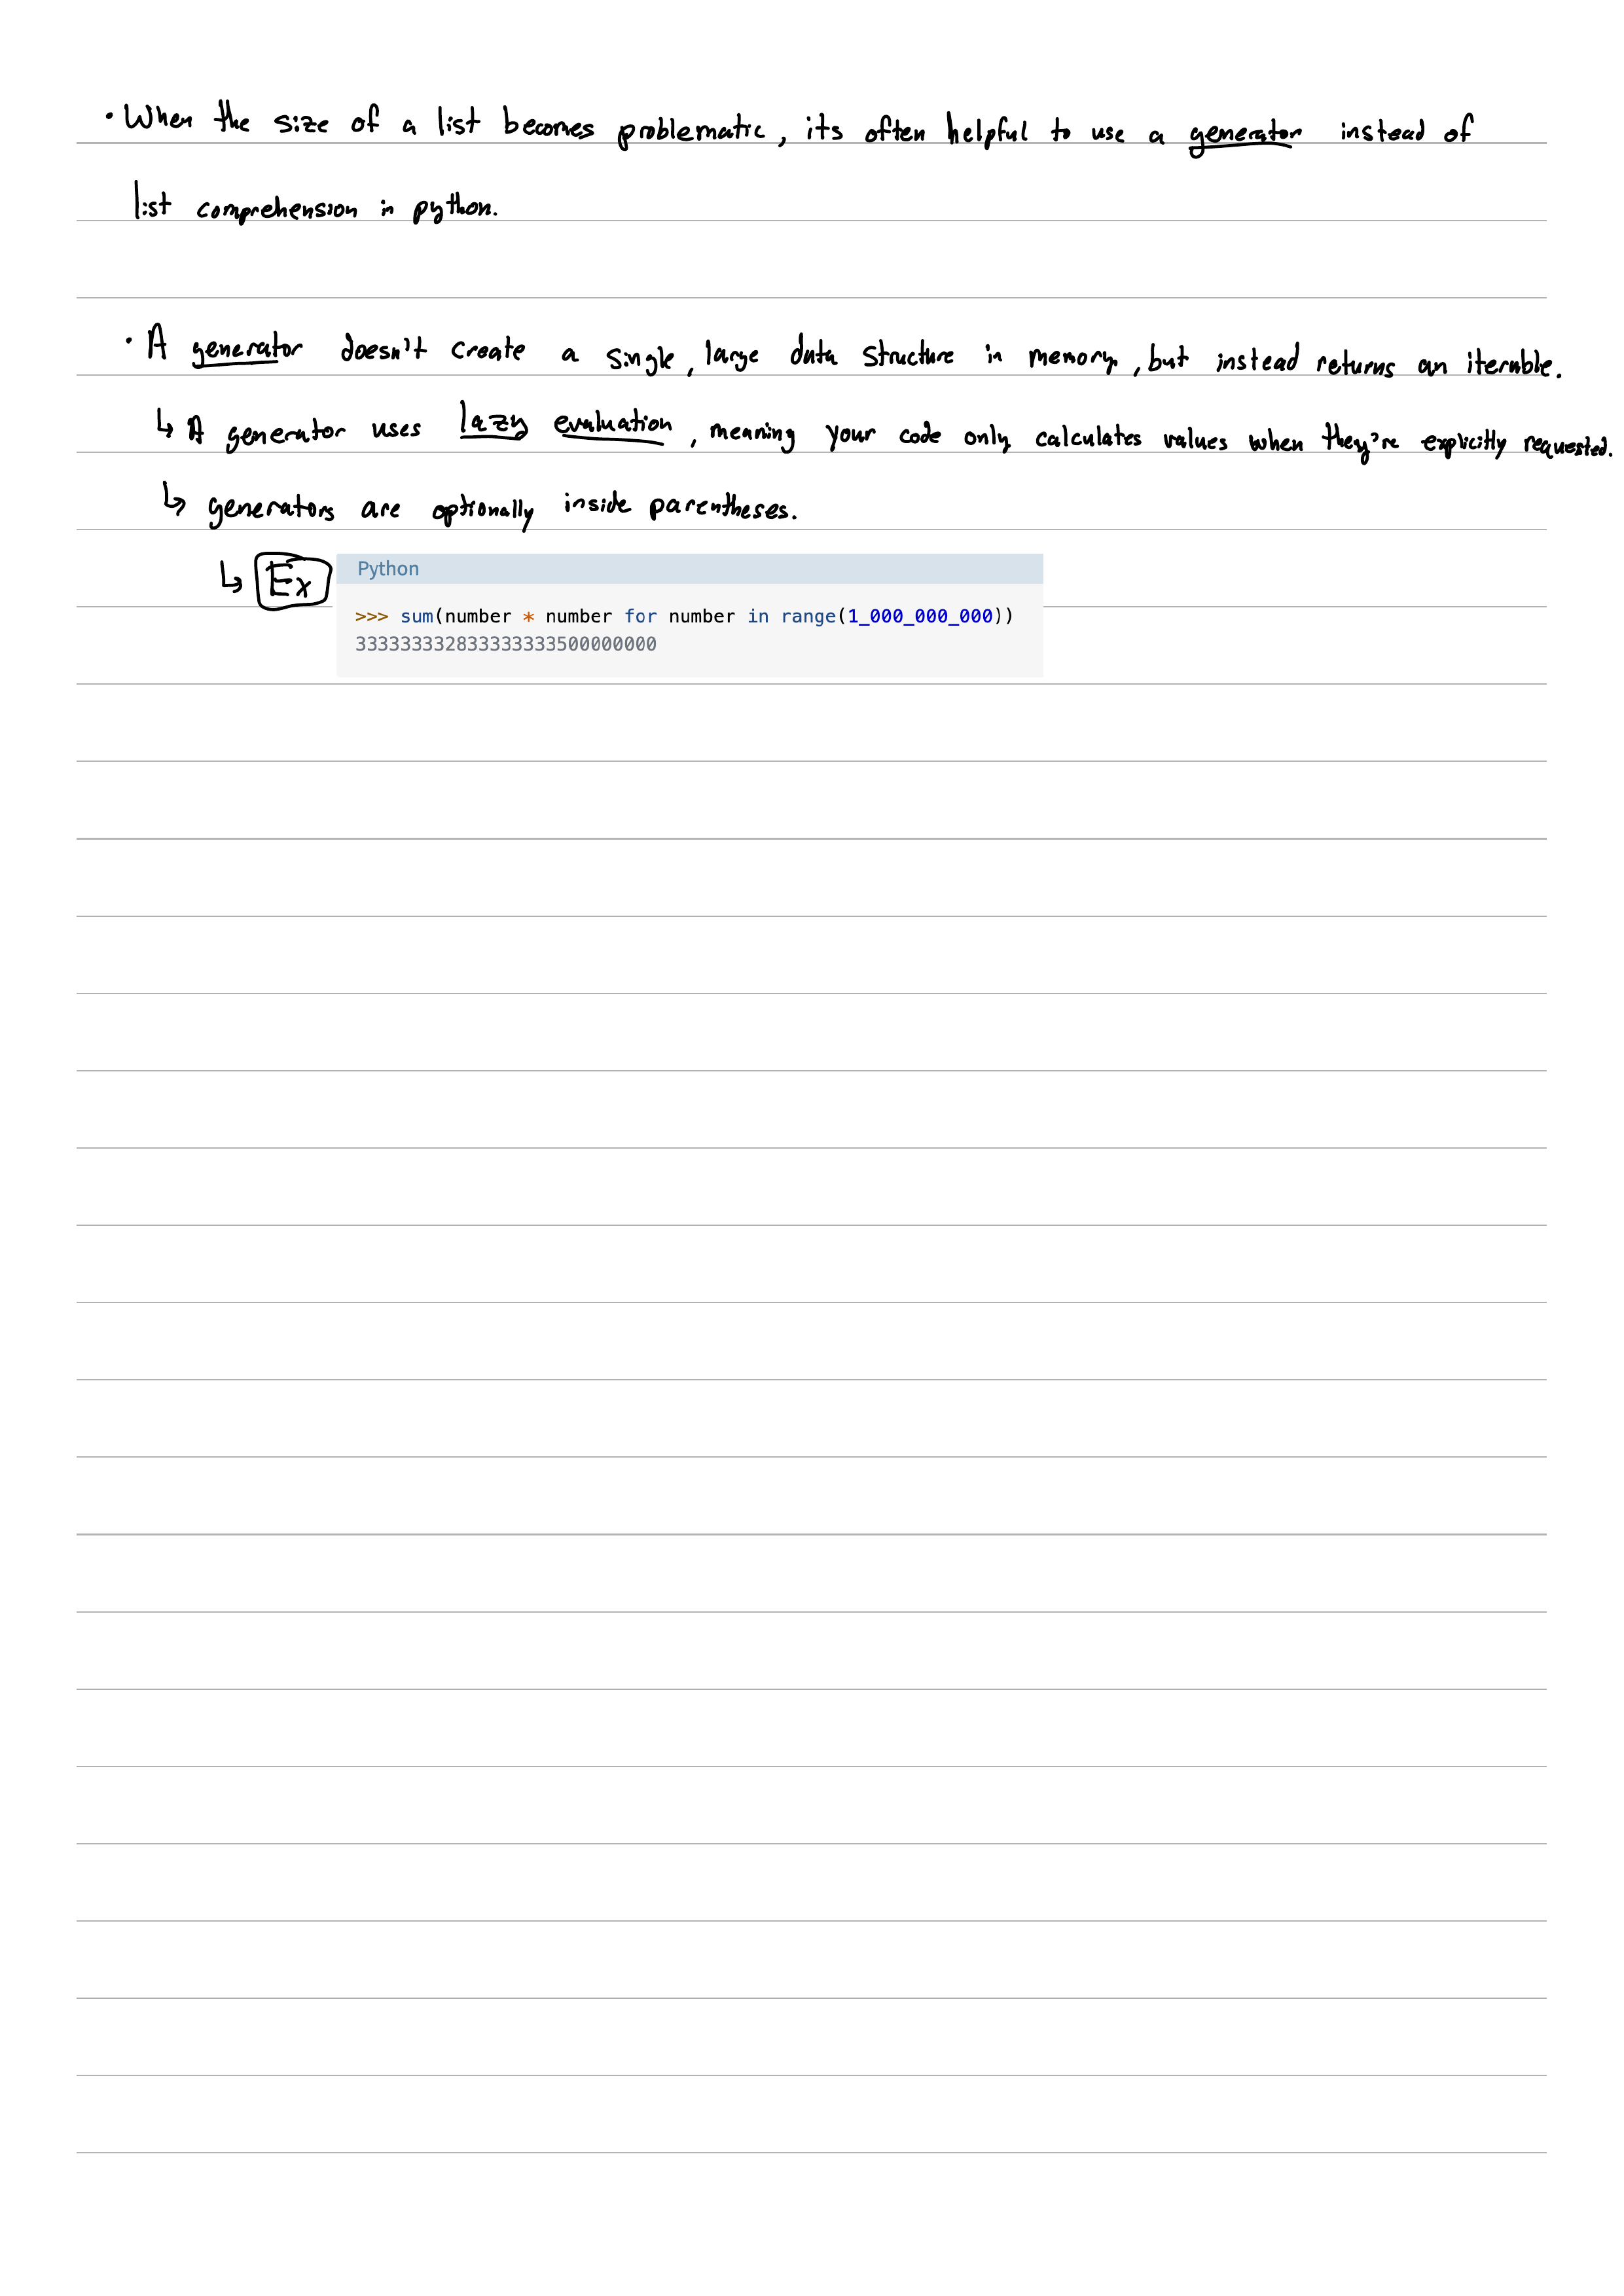 • When the size of a list becomes problematic, its often helpful to use a generator instead of
list comprehension in python.
• A generator doesn't create a single, large data structure in memory, but instead returns an iterable.
↳ A generator uses lazy evaluation, meaning your code only calculates values when they're explicitly requested.
↳ generators are optionally inside parentheses.
↳ Ex
Python
>>> sum(number * number for number in range(1_000_000_000))
333333332833333333500000000